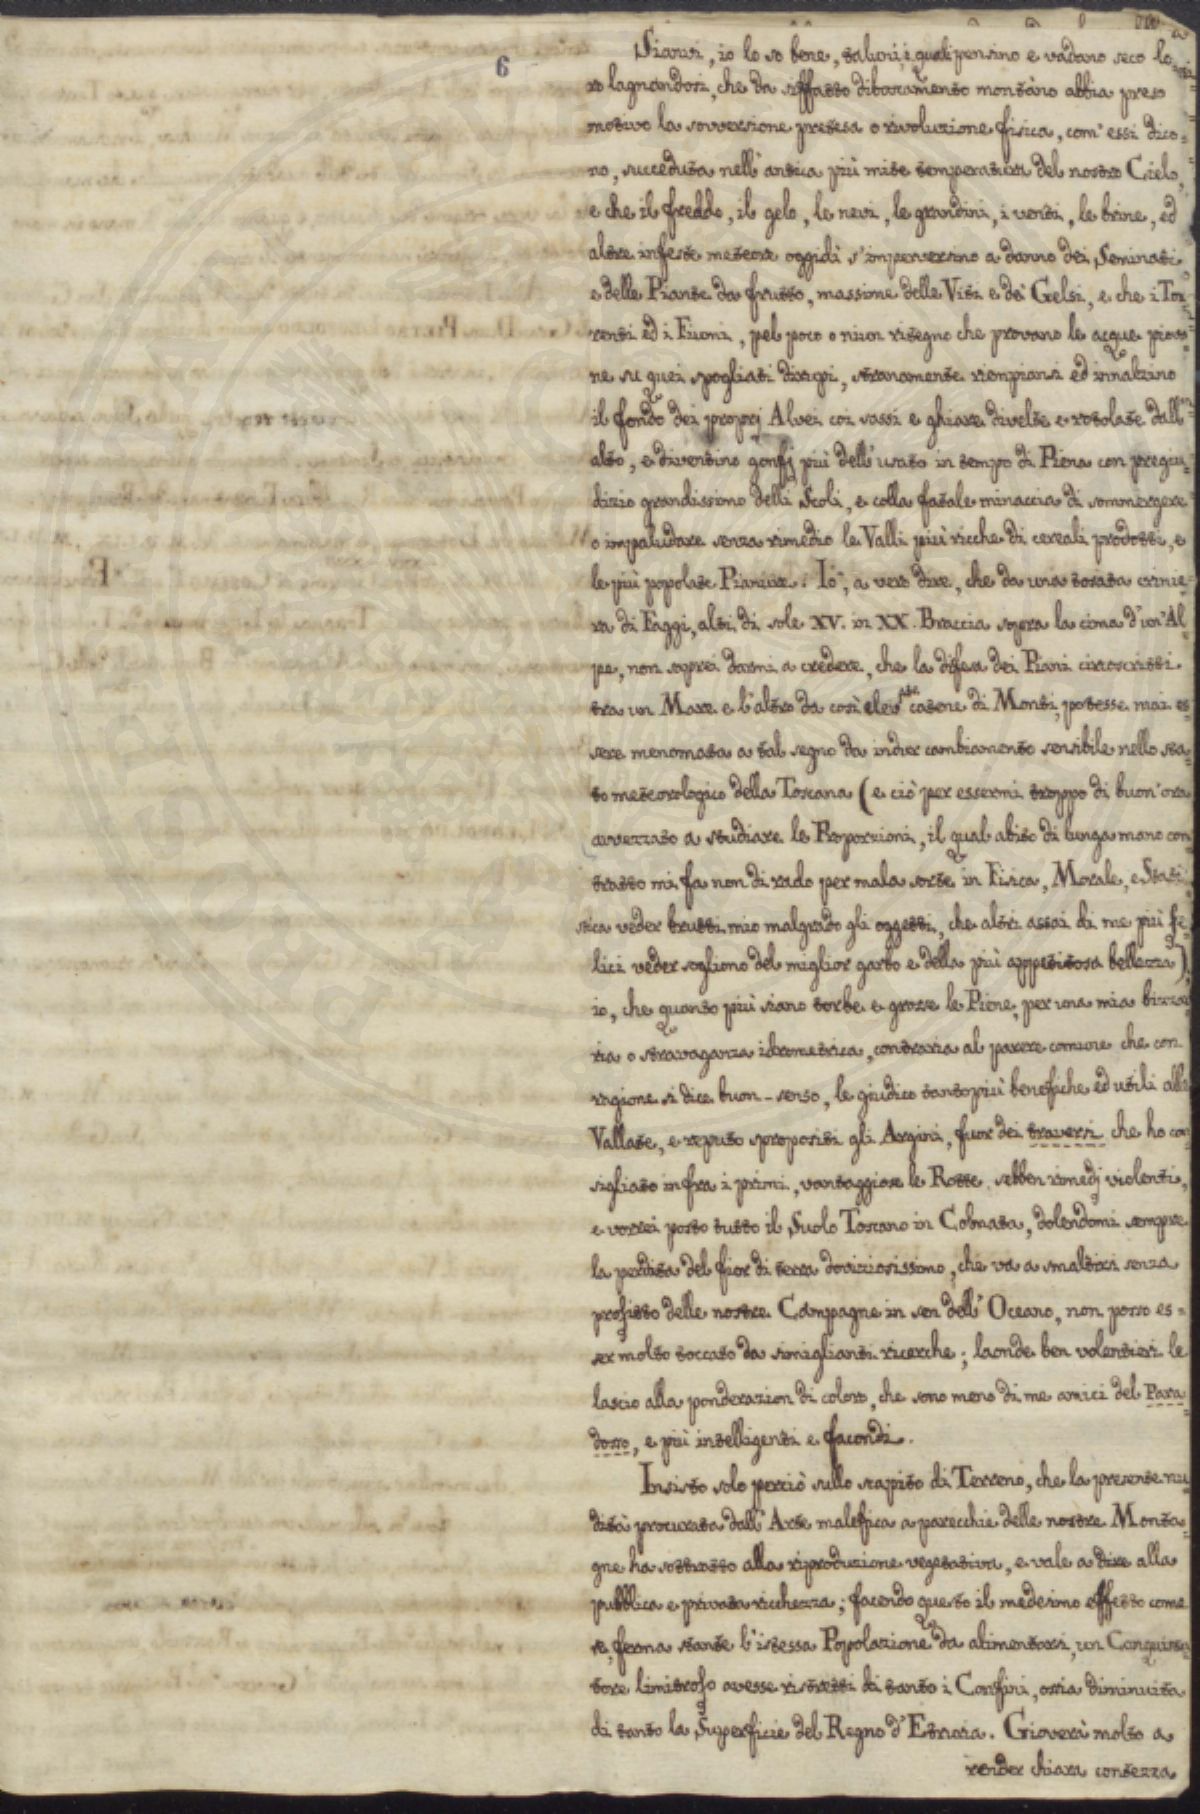 6
Sianvi, io lo so bene, taluni, i quali pensino e vadano seco lo=
ro lagnandosi, che da siffatto disboscamento montano abbia preso
motivo la sovversione pretesa o rivoluzione fisica, com' essi dico=
no, succeduta nell' antica più mite temperatura del nostro Cielo,
e che il freddo, il gelo, le nevi, le grandini, i venti, le brine, ed
altre infeste meteore oggidì s' imperversino a danno dei Seminati
e delle Piante da frutto, massime delle Viti e de' Gelsi, e che i Tor=
renti ed i Fiumi, pel poco o niun ritegno che provano le acque piova
ne su quei spogliati dirupi, stranamente riempiansi ed innalzino
il fondo dei proprj Alvei coi sassi e ghiare divelte e rotolate dall'
alto, e diventino gonfj più dell' usato in tempo di Piena con pregiu=
dizio grandissimo delli Scoli, e colla fatale minaccia di sommergere
o impaludare senza rimedio le Valli più ricche di cereali prodotti, e
le più popolate Pianure. Io, a vero dire, che da una tosata crinie=
ra di Faggi, alti di sole XV. in XX. Braccia sopra la cima d' un' Al=
pe, non saprei darmi a credere, che la difesa dei Piani circoscritti
tra un Mare e l' altro da così elevate catene di Monti, potesse mai es=
sere menomata a tal segno da indur cambiamento sensibile nello sta=
to meteorologico della Toscana (e ciò per essermi troppo di buon' ora
avvezzato a studiare le Proporzioni, il qual abito di lunga mano con
tratto mi fa non di rado per mala sorte in Fisica, Morale, e Stati
stica veder brutti mio malgrado gli oggetti, che altri assai di me più fe=
lici veder sogliono del miglior garbo e della più appetitosa bellezza),
io, che quanto più siano torbe e grosse le Piene, per una mia bizzar
ria o stravaganza idrometrica, contraria al parere comune che con
ragione si dice buon-senso, le giudico tantopiù benefiche ed utili alle
Vallate, e reputo spropositi gli Argini, fuor dei traversi che ho con
sigliato infra i primi, vantaggiose le Rotte sebben rimedj violenti,
e vorrei posto tutto il Suolo Toscano in Colmata, dolendomi sempre
la perdita del fior di terra doviziosissimo, che va a smaltirsi senza
profitto delle nostre Campagne in sen dell' Oceano, non posso es=
ser molto toccato da simiglianti ricerche; laonde ben volentieri le
lascio alla ponderazion di coloro, che sono meno di me amici del Para=
dosso, e più intelligenti e facondi.
Insisto solo perciò sullo scapito di Terreno, che la presente nu=
dità procurata dall' Arte malefica a parecchie delle nostre Monta=
gne ha sottratto alla riproduzione vegetativa, e vale a dire alla
pubblica e privata ricchezza; facendo questo il medesimo effetto come
se, ferma stante l' istessa Popolazione da alimentarsi, un Conquista=
tore limitrofo avesse ristretti di tanto i Confini, ossia diminuita
di tanto la Superficie del Regno d' Etruria. Gioverà molto a
render chiara contezza